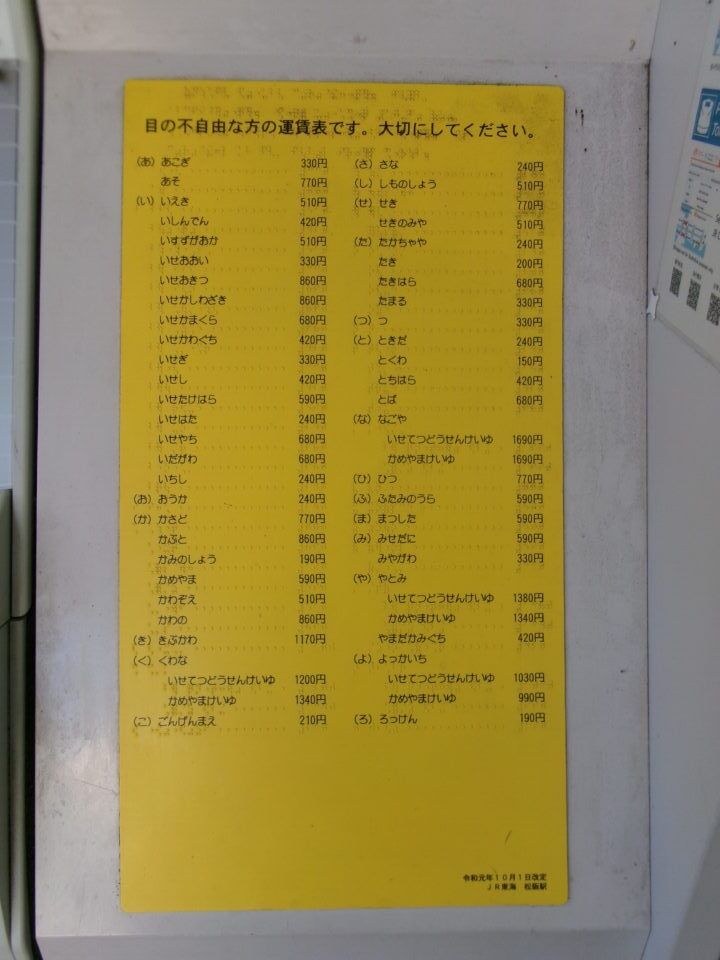 目の不自由な方の運賃表です。大切にしてください。
(あ) あこぎ 330円
あそ 770円
(い) いえき 510円
いしんでん 420円
いすずがおか 510円
いせおおい 330円
いせおきつ 860円
いせかしわざき 860円
いせかまくら 680円
いせかわぐち 420円
いせぎ 330円
いせし 420円
いせたけはら 590円
いせはた 240円
いせやち 680円
いだがわ 680円
いちし 240円
(お) おうか 240円
(か) かさど 770円
かぶと 860円
かみのしょう 190円
かめやま 590円
かわぞえ 510円
かわの 860円
(き) きぶかわ 1170円
(く) くわな
いせてつどうせんけいゆ 1200円
かめやまけいゆ 1340円
(こ) ごんげんまえ 210円
(さ) さな 240円
(し) しものしょう 510円
(せ) せき 770円
せきのみや 510円
(た) たかちゃや 240円
たき 200円
たきはら 680円
たまる 330円
(つ) つ 330円
(と) ときだ 240円
とくわ 150円
とちはら 420円
とば 680円
(な) なごや
いせてつどうせんけいゆ 1690円
かめやまけいゆ 1690円
(ひ) ひつ 770円
(ふ) ふたみのうら 590円
(ま) まつした 590円
(み) みせだに 590円
みやがわ 330円
(や) やとみ
いせてつどうせんけいゆ 1380円
かめやまけいゆ 1340円
やまだかみぐち 420円
(よ) よっかいち
いせてつどうせんけいゆ 1030円
かめやまけいゆ 990円
(ろ) ろっけん 190円
令和元年10月1日改定
JR東海 松阪駅